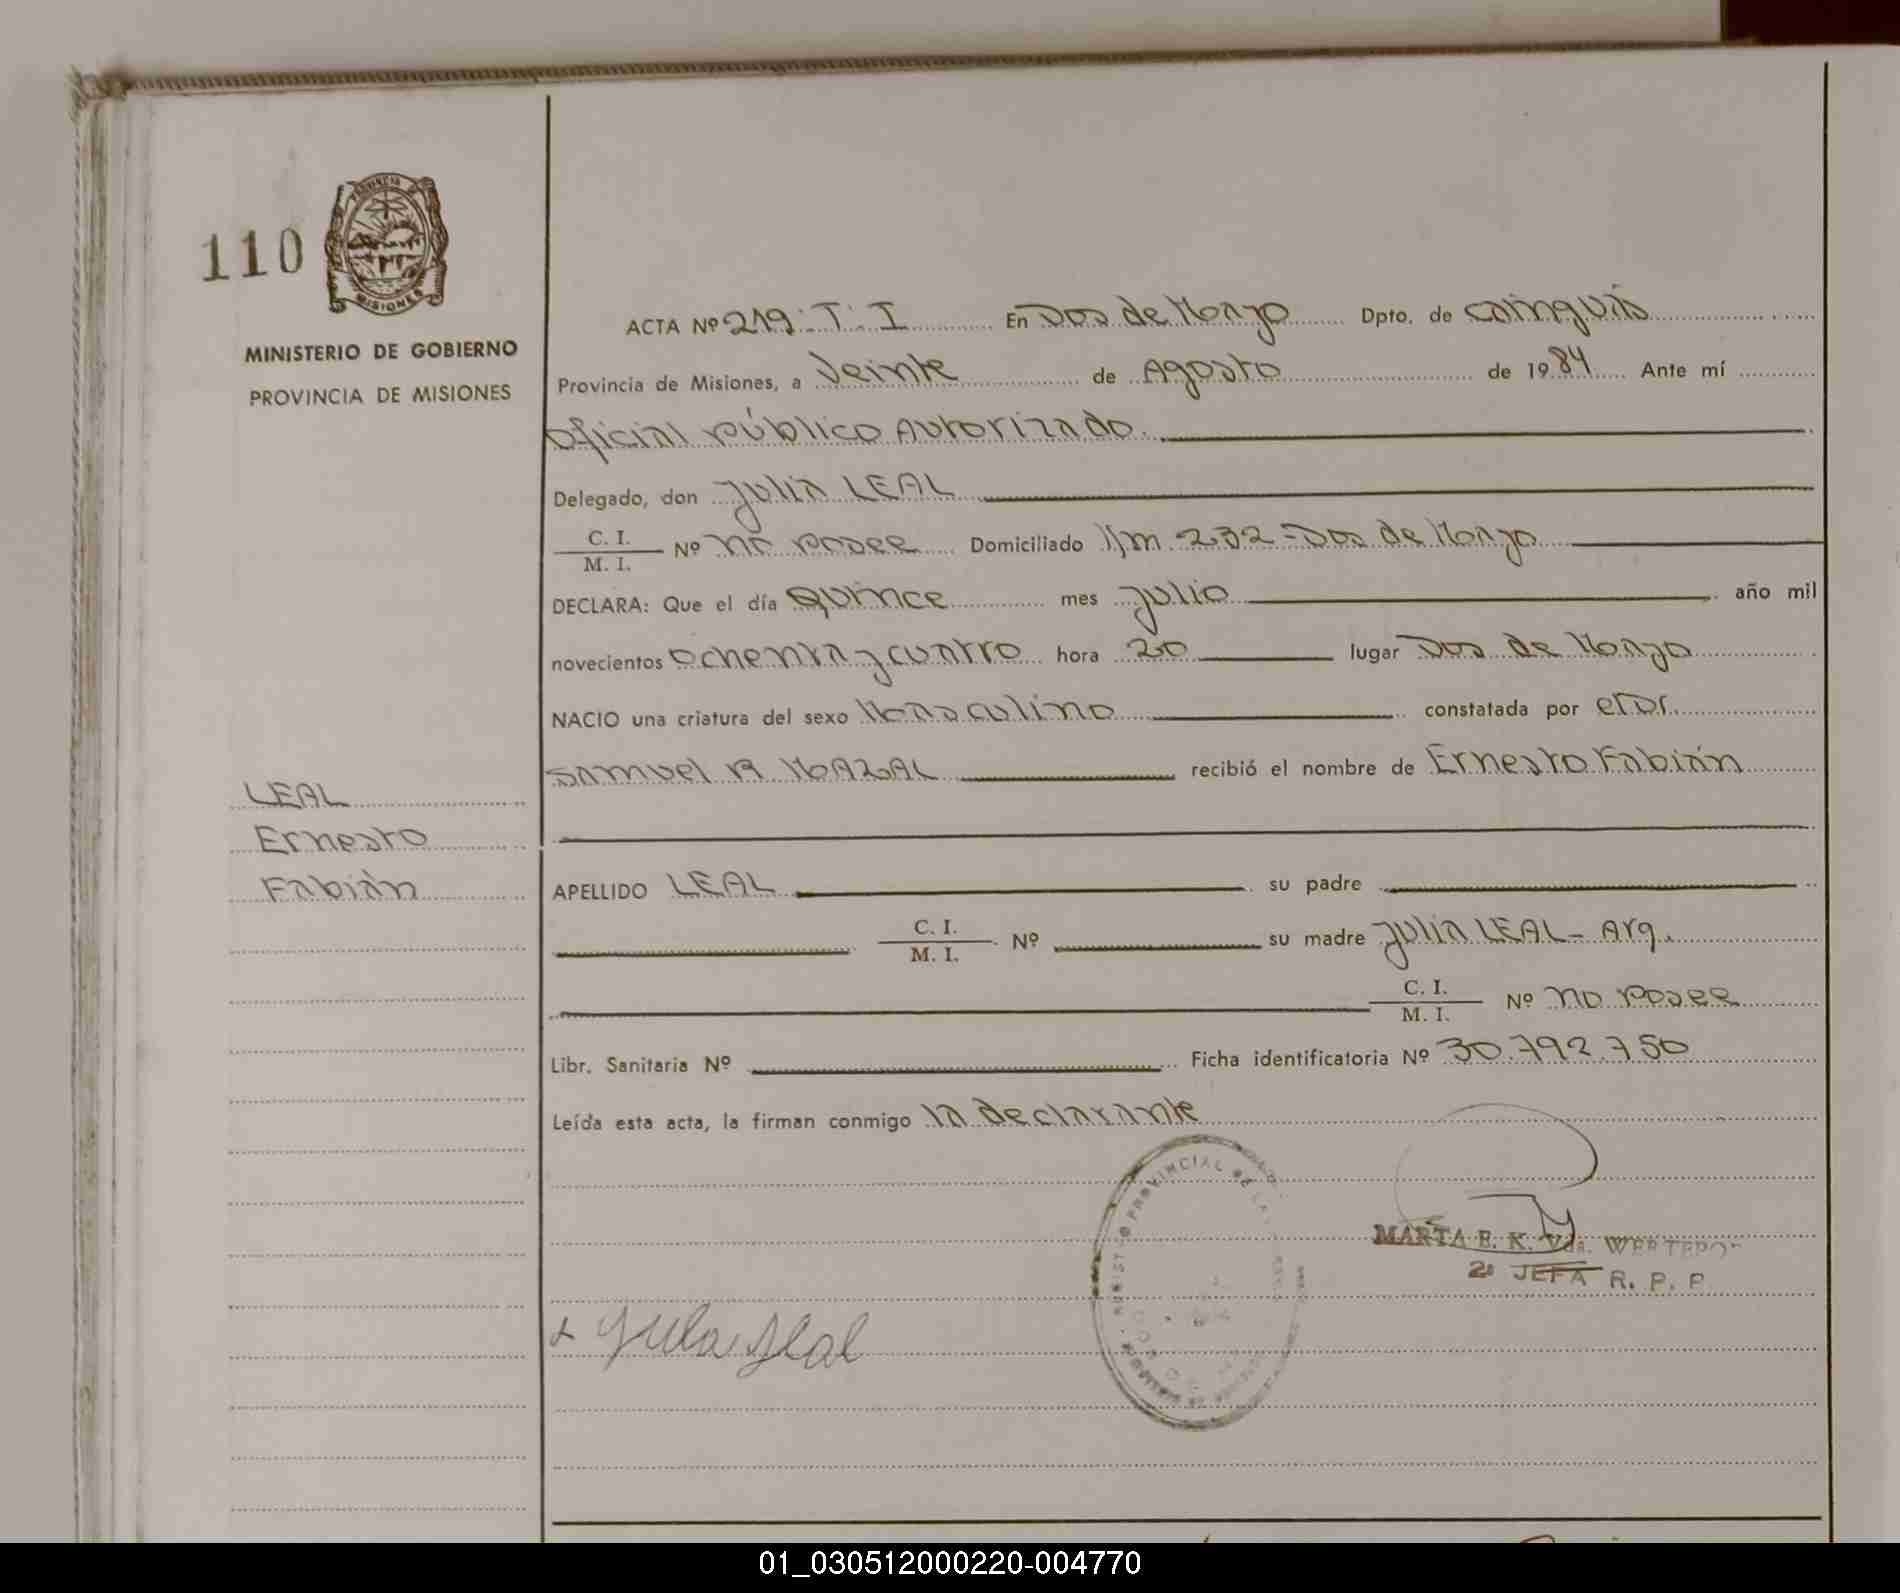 110
PROVINCIA DE
MISIONES
MINISTERIO DE GOBIERNO
PROVINCIA DE MISIONES
ACTA Nº 219: T: I En Dos de Mayo Dpto. de Cainguás
Provincia de Misiones, a Veinte de Agosto de 1984 Ante mí
oficial público Autorizado.
Delegado, don Julia LEAL
C. I.
M. I. Nº no posee Domiciliado Km 232-Dos de Mayo
DECLARA: Que el día Quince mes julio año mil
novecientos ochenta y cuatro hora 20 lugar Dos de Mayo
NACIO una criatura del sexo Masculino constatada por el Dr.
Samuel R MAZAL recibió el nombre de Ernesto Fabián
LEAL
Ernesto
Fabián
APELLIDO LEAL su padre
C. I.
M. I. Nº su madre Julia LEAL- Arg.
C. I.
M. I. Nº no posee
Libr. Sanitaria Nº Ficha identificatoria Nº 30.792.750
Leída esta acta, la firman conmigo la declarante
PROVINCIAL DE LA
MARTA E. K. Vda.
2º JEFA R. P. P.
01_030512000220-004770